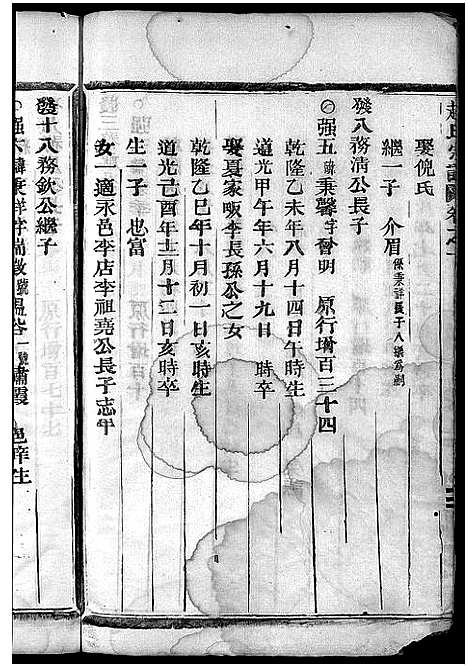 趙氏宗譜
娶倪氏
繼一子 介眉 係秉祥長子入繼為嗣
發八務清公長子
强五 諱秉馨字會明 原行增百三十四
乾隆乙未年八月十四日午時生
道光甲午年六月十九日 時卒
娶夏家畈李長孫公之女
乾隆乙巳年十月初一日亥時生
道光己酉年十二月十二日亥時卒
生一子 也富
女 適永邑李店李祖堯公長子志年
發十八務欽公繼子
强六諱秉祥字瑞徵號 谷一號霞 邑庠生